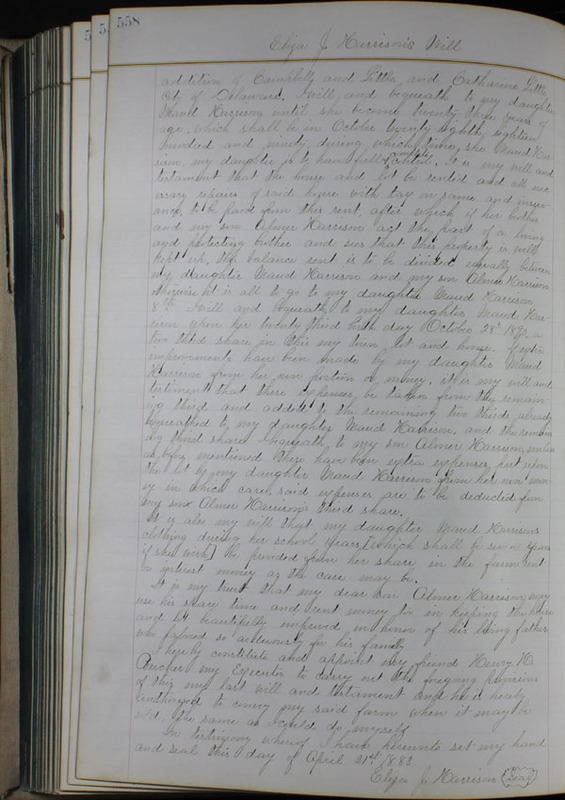 558
Eliza J. Harrison's Will
addition of Campbell and Little and Catharine Little
City of Delaware. I will and bequeath to my daughter
Maud Harrison until she become twenty three years of
age, which shall be in October twenty eighth, eighteen
hundred and ninety, during which time, she Maud Har-
rison, my daughter is to have full control. It is my will and
testament that the house and lot be rented and all nec
essary repairs of said house with tax on same and insur-
ance, to be paid from this rent, after which if her brother
and my son Almer Harrison act the part of a loving
and protecting brother and sees that this property is well
kept up, the balance rent is to be divided equally between
my daughter Maud Harrison and my son Almer Harrison
otherwise it is all to go to my daughter Maud Harrison.
8th I will and bequeath to my daughter Maud Har-
rison upon her twenty third birth day October 28th 1890, a
two third share in this my town lot and house. If extra
improvements have been made by my daughter Maud
Harrison from her own portion of money, it is my will and
testament that these expenses be taken from the remain
ing third and added to the remaining two thirds already
bequeathed to my daughter Maud Harrison, and the remain
ing third share I bequeath to my son Almer Harrison, unless
as before mentioned there have been extra expenses put upon
the lot by my daughter Maud Harrison from her own mon
ey in which case, said expenses are to be deducted from
my son Almer Harrison's third share.
It is also my will that my daughter Maud Harrison's
clothing during her school years, [which shall be seven years
if she wish] be provided from her share in the farm rent
or interest money as the case may be.
It is my trust that my dear son Almer Harrison, may
use his share time and rent money too in keeping the house
and lot beautifully improved in honor of his loving father
who labored so arduously for his family
I hereby constitute and appoint my friend Henry W.
my Executor to carry out the foregoing provisions
of this my last will and testament and he is hereby
authorized to convey my said farm when it may be
sold, the same as I could do myself
In testimony whereof I have hereunto set my hand
and seal this day of April 21st 1883
Eliza J. Harrison (Seal)